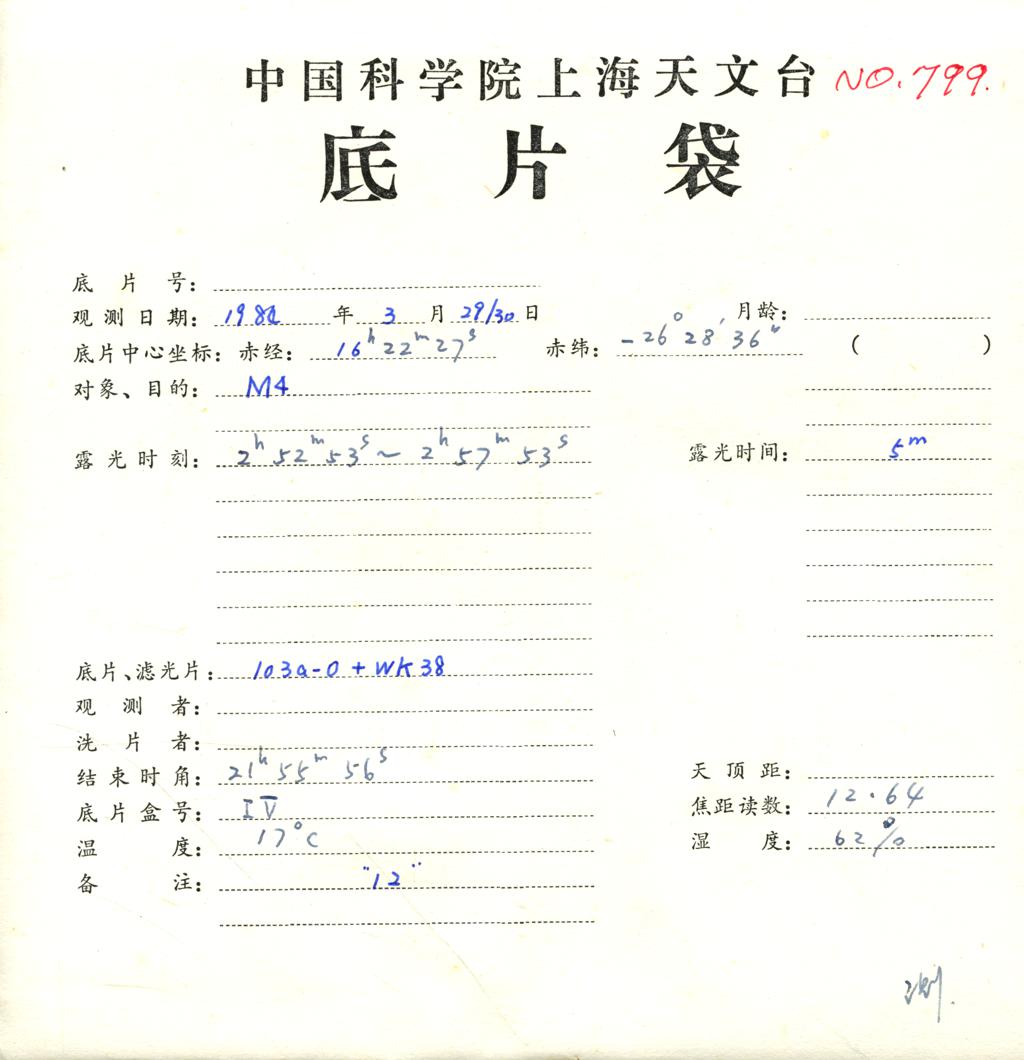 中国科学院上海天文台 NO.799.
底片袋
底片号：
观测日期： 年 3 月 29/30 日 月龄：
底片中心坐标：赤经： 16h 22m 27s 赤纬： -26° 28′ 36″ ( )
对象、目的： M4
露光时刻： 2h 52m 53s ~ 2h 57m 53s 露光时间： 5m
底片、滤光片： 103a-O + WK38
观测者：
洗片者：
结束时角： 21h 55m 56s 天顶距：
底片盒号： IV 焦距读数： 12.64
温度： 17°C 湿度： 62%
备注： "12"
测.